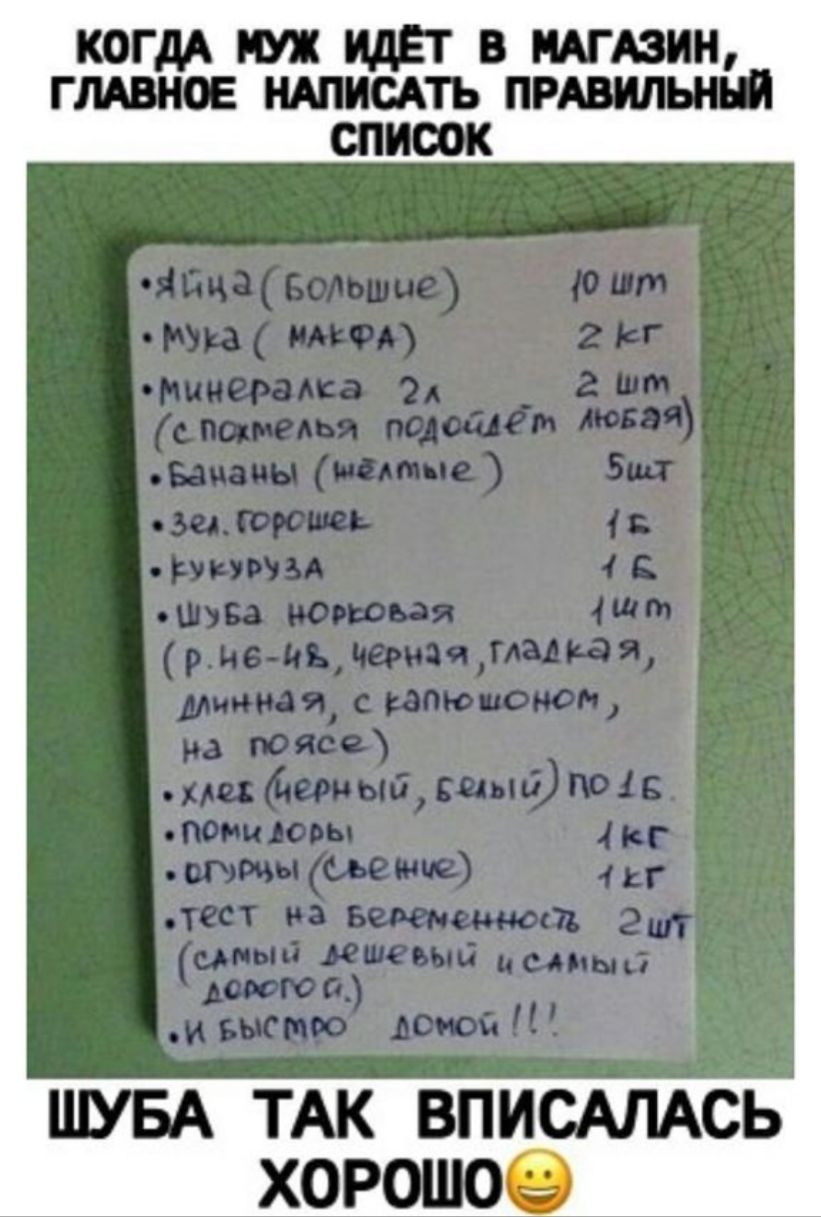 КОГДА МУЖ ИДЁТ В МАГАЗИН,
ГЛАВНОЕ НАПИСАТЬ ПРАВИЛЬНЫЙ
СПИСОК
•Яйца (Большие) 10 шт
•Мука (МАКФА) 2 кг
•Минералка 2л 2 шт
(с похмелья подойдёт любая)
•Бананы (жёлтые) 5шт
•Зел. горошек 1 Б
•Кукуруза 1 Б
•Шуба норковая 1 шт
(р. 46-48, черная, гладкая,
длинная, с капюшоном,
на поясе)
•хлеб (черный, белый) по 1Б.
•помидоры 1 кг
•огурцы (свежие) 1 кг
•тест на беременность 2 шт
(самый дешевый и самый
дорогой.)
•И Быстро домой!!!
ШУБА ТАК ВПИСАЛАСЬ
ХОРОШО😀